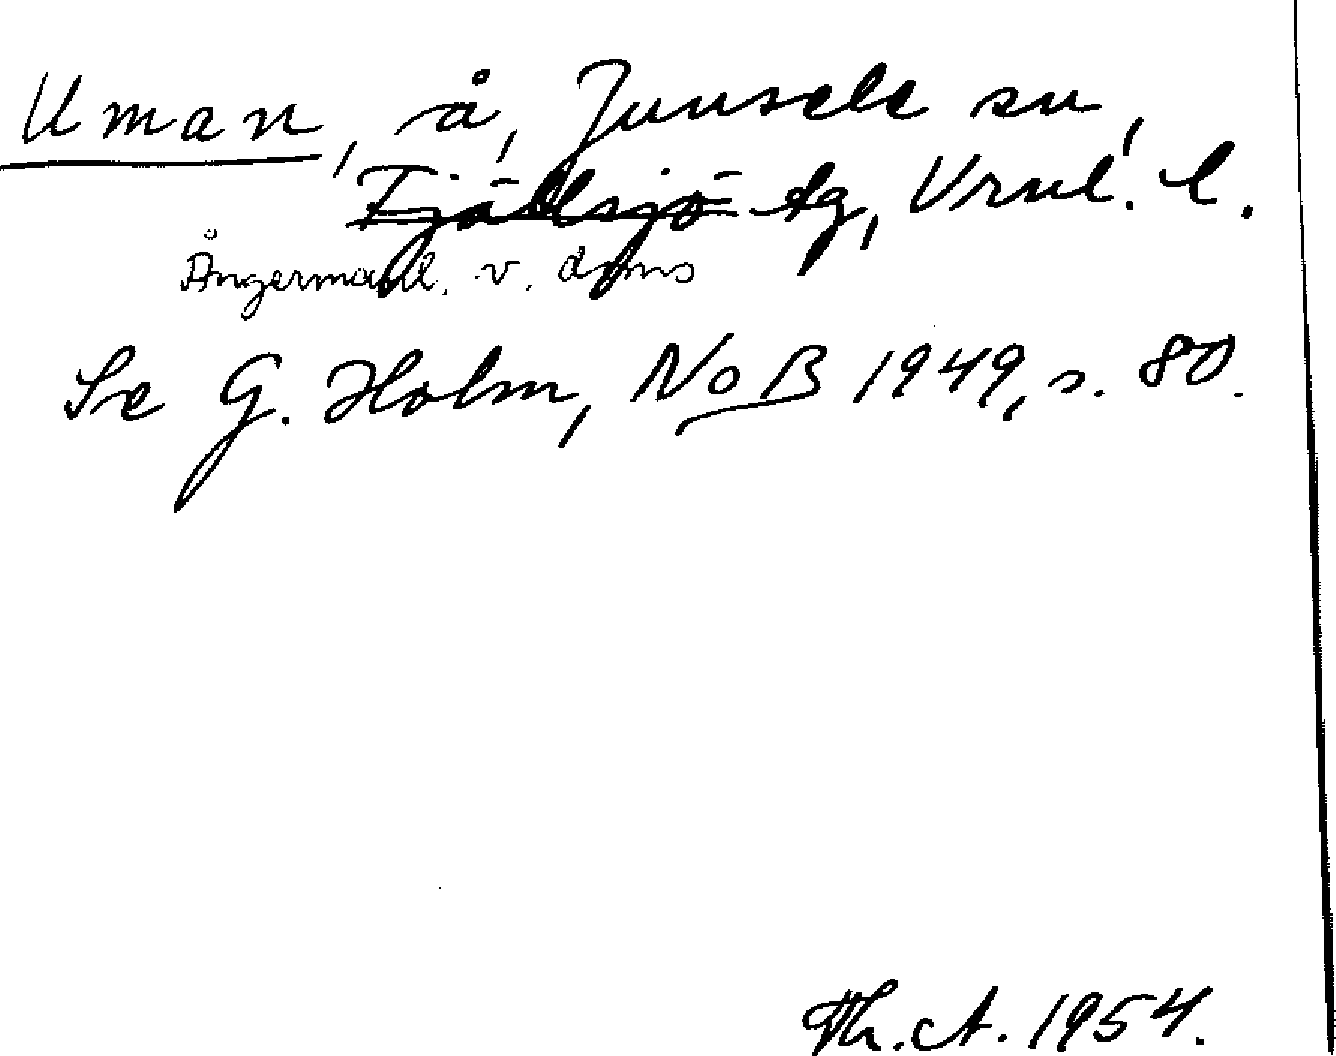 Uman, å, Junsele sn,
Fjällsjö tg, Vrnl. l.
Ångermanl. v. doms
Se G. Holm, NoB 1949, s. 80.
Th. A. 1954.